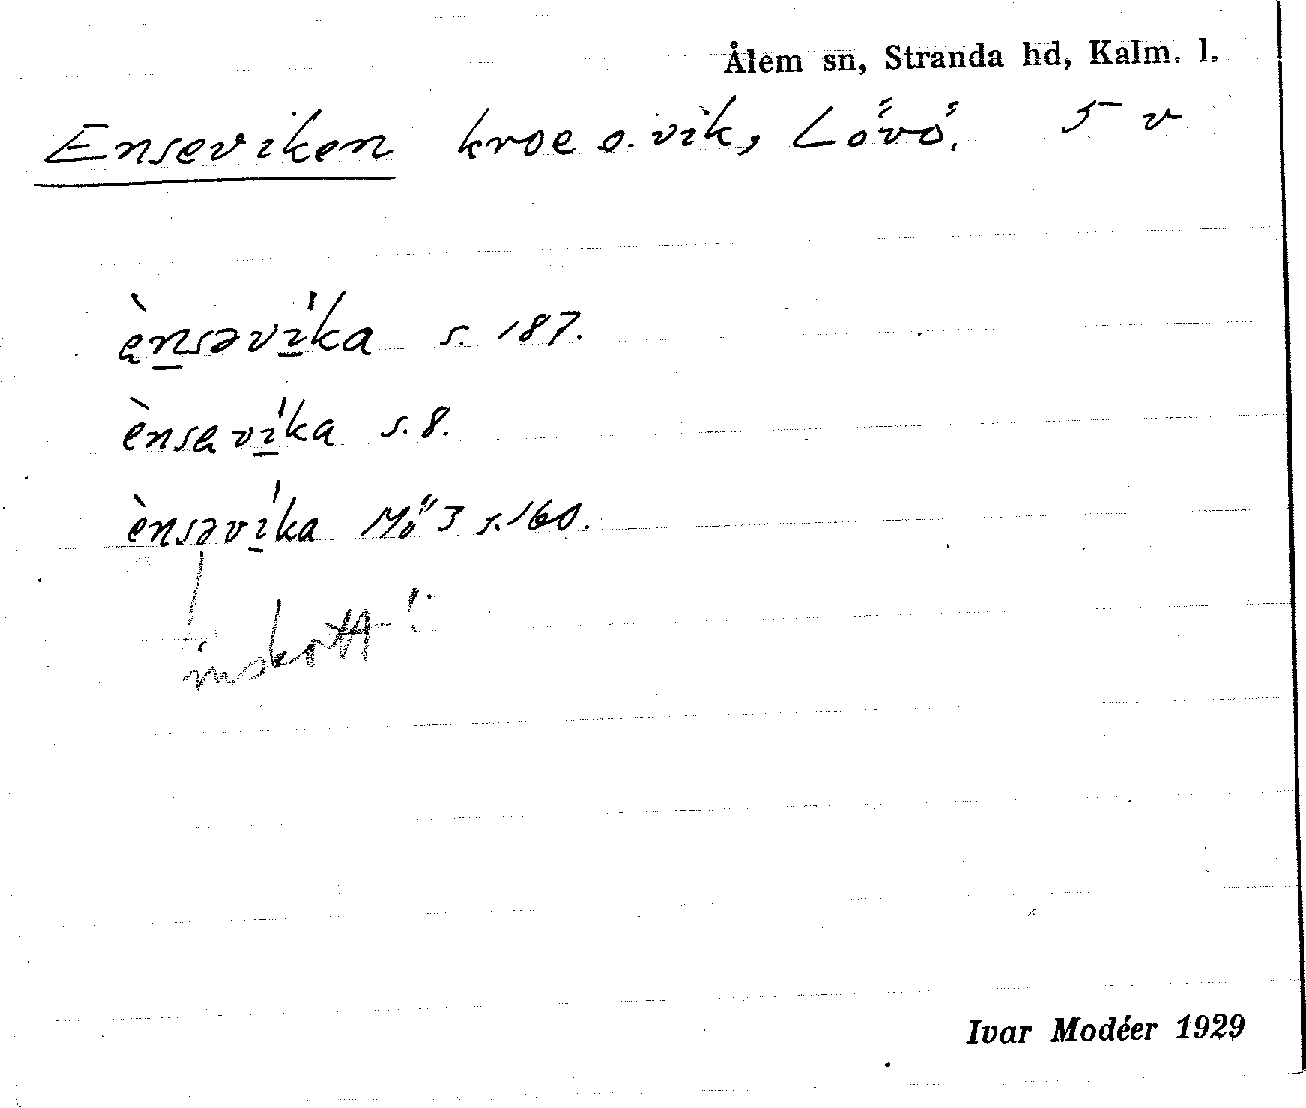 Ålem sn, Stranda hd, Kalm. l.
Enseviken kroe o. vik, Lövö. 5 v
ènsəvíka s. 187.
ènsavíka s. 8.
ènsəvíka Mö 3 s. 160.
inskott!
Ivar Modéer 1929